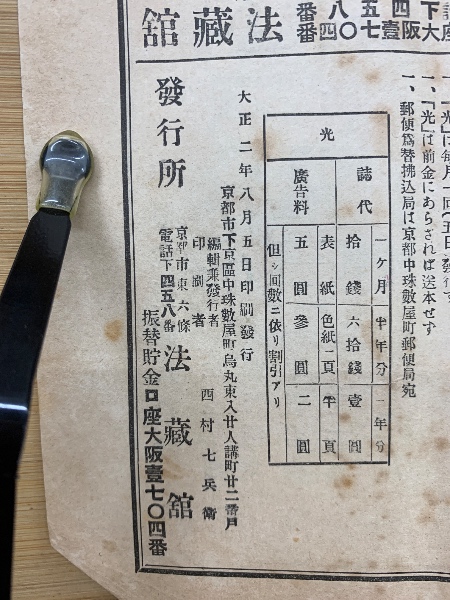 一、「光」は毎月一回(五日)發行す
一、「光」は前金にあらざれば送本せず
一、郵便爲替拂込局は京都中珠數屋町郵便局宛
光
誌代
一ケ月 半年分 一年分
拾錢 六拾錢 壹圓
廣告料
表紙 色紙一頁 半頁
五圓 參圓 二圓
但シ回數ニ依リ割引アリ
大正二年八月五日印刷發行
京都市下京區中珠數屋町烏丸東入廿人講町廿二番戸
編輯兼發行者
印刷者
西村七兵衞
發行所
京都市東六條
電話下四五八番
法藏舘
振替貯金口座大阪壹七〇四番
下大
四阪
五壹
七
八〇
四
番番
法藏舘